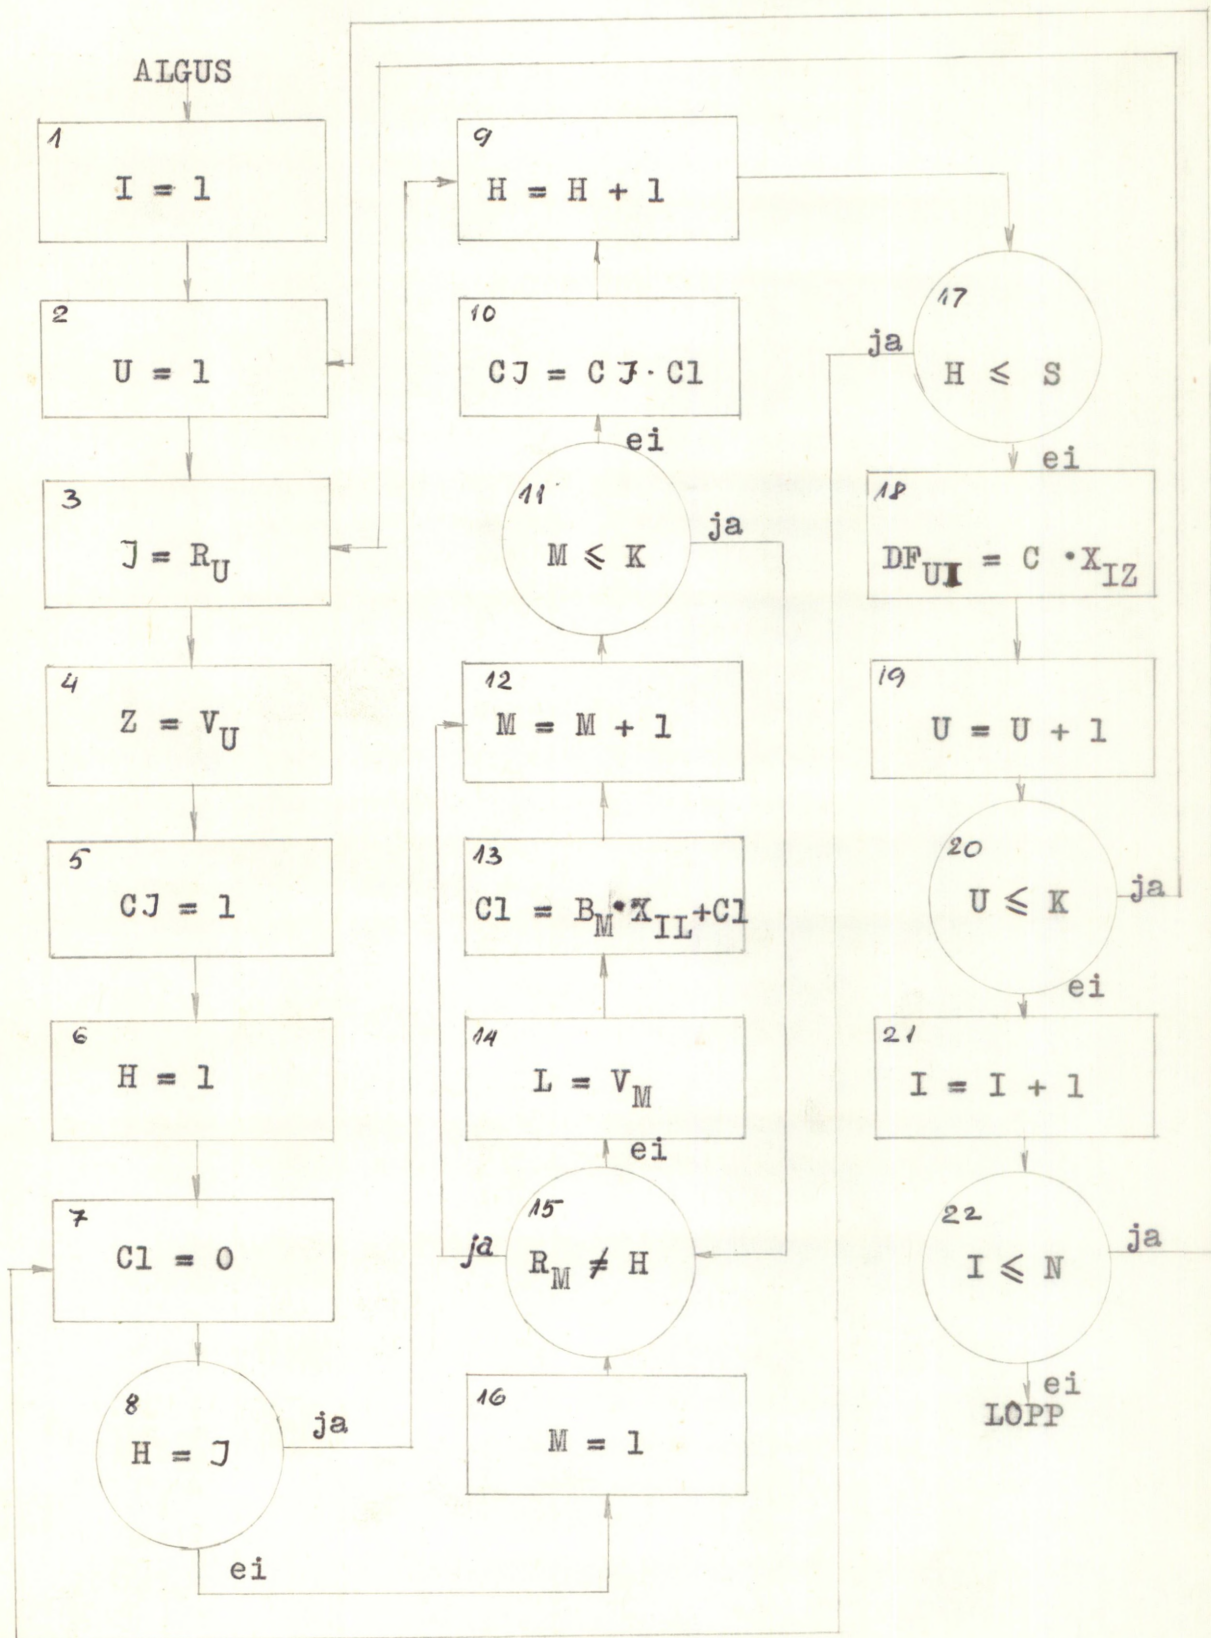 ALGUS
1
I = 1
2
U = 1
3
J = R_U
4
Z = V_U
5
CJ = 1
6
H = 1
7
C1 = 0
8
H = J
ja
ei
9
H = H + 1
10
CJ = CJ·C1
ei
11
M ⩽ K
ja
12
M = M + 1
13
C1 = B_M·X_IL+C1
14
L = V_M
ei
15
R_M ≠ H
ja
16
M = 1
17
H ⩽ S
ja
ei
18
DF_UI = C ·X_IZ
19
U = U + 1
20
U ⩽ K
ja
ei
21
I = I + 1
22
I ⩽ N
ja
ei
LÕPP